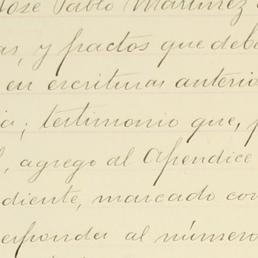 José Pablo Martínez
as, y pactos que debe
en escrituras anterio
ia; testimonio que, p
l, agrego al Apendice
diente, marcado con
esponder al número